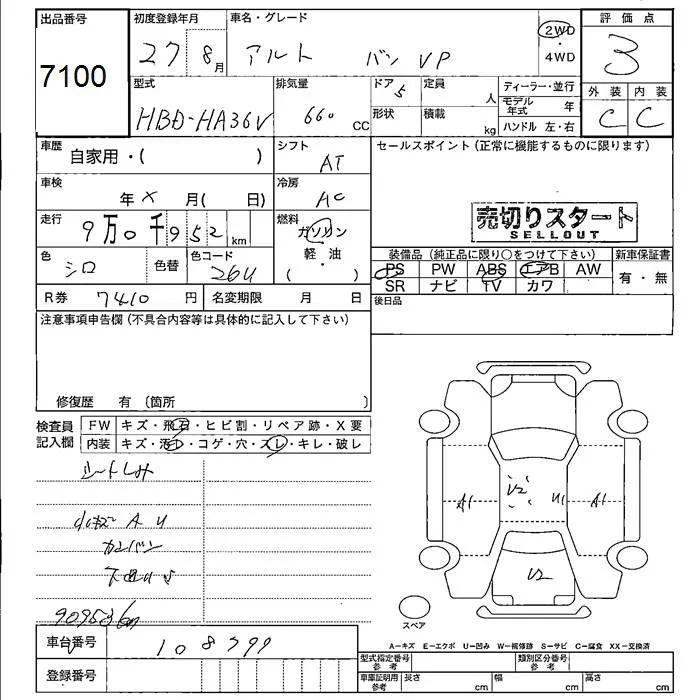 出品番号 初度登録年月 車名・グレード 評価点
7100 27 8月 アルト バン VP 2WD・4WD 3
型式 排気量 ドア 定員 ディーラー・並行 外装 内装
HBD-HA36V 660 CC 5 人 モデル年式 年 C C
形状 積載 kg ハンドル 左・右
車歴 自家用・( ) シフト AT セールスポイント(正常に機能するものに限ります)
車検 年 X 月( 日) 冷房 AC
走行 9万0千952km 燃料 ガソリン 軽・油 ( )
売切りスタート
SELLOUT
色 シロ 色替 色コード 26U
装備品(純正品に限り○をつけて下さい) 新車保証書
PS PW ABS エアB AW 有・無
SR ナビ TV カワ
R券 7410 円 名変期限 月 日 後日品
注意事項申告欄(不具合内容等は具体的に記入して下さい)
修復歴 有 〔箇所 〕
検査員記入欄 FW キズ・飛石・ヒビ割・リペア跡・X要
内装 キズ・汚れ・コゲ・穴・スレ・キレ・破レ
シートしみ
小キズ A U
カンバン
90952km
A1 U2 U1 A1
U2
スペア
A−キズ E−エクボ U−凹み W−補修跡 S−サビ C−腐食 XX−交換済
車台番号 108799
登録番号
型式指定番号 参考 類別区分番号 参考
車庫証明用 参考 長さ cm 幅 cm 高さ cm